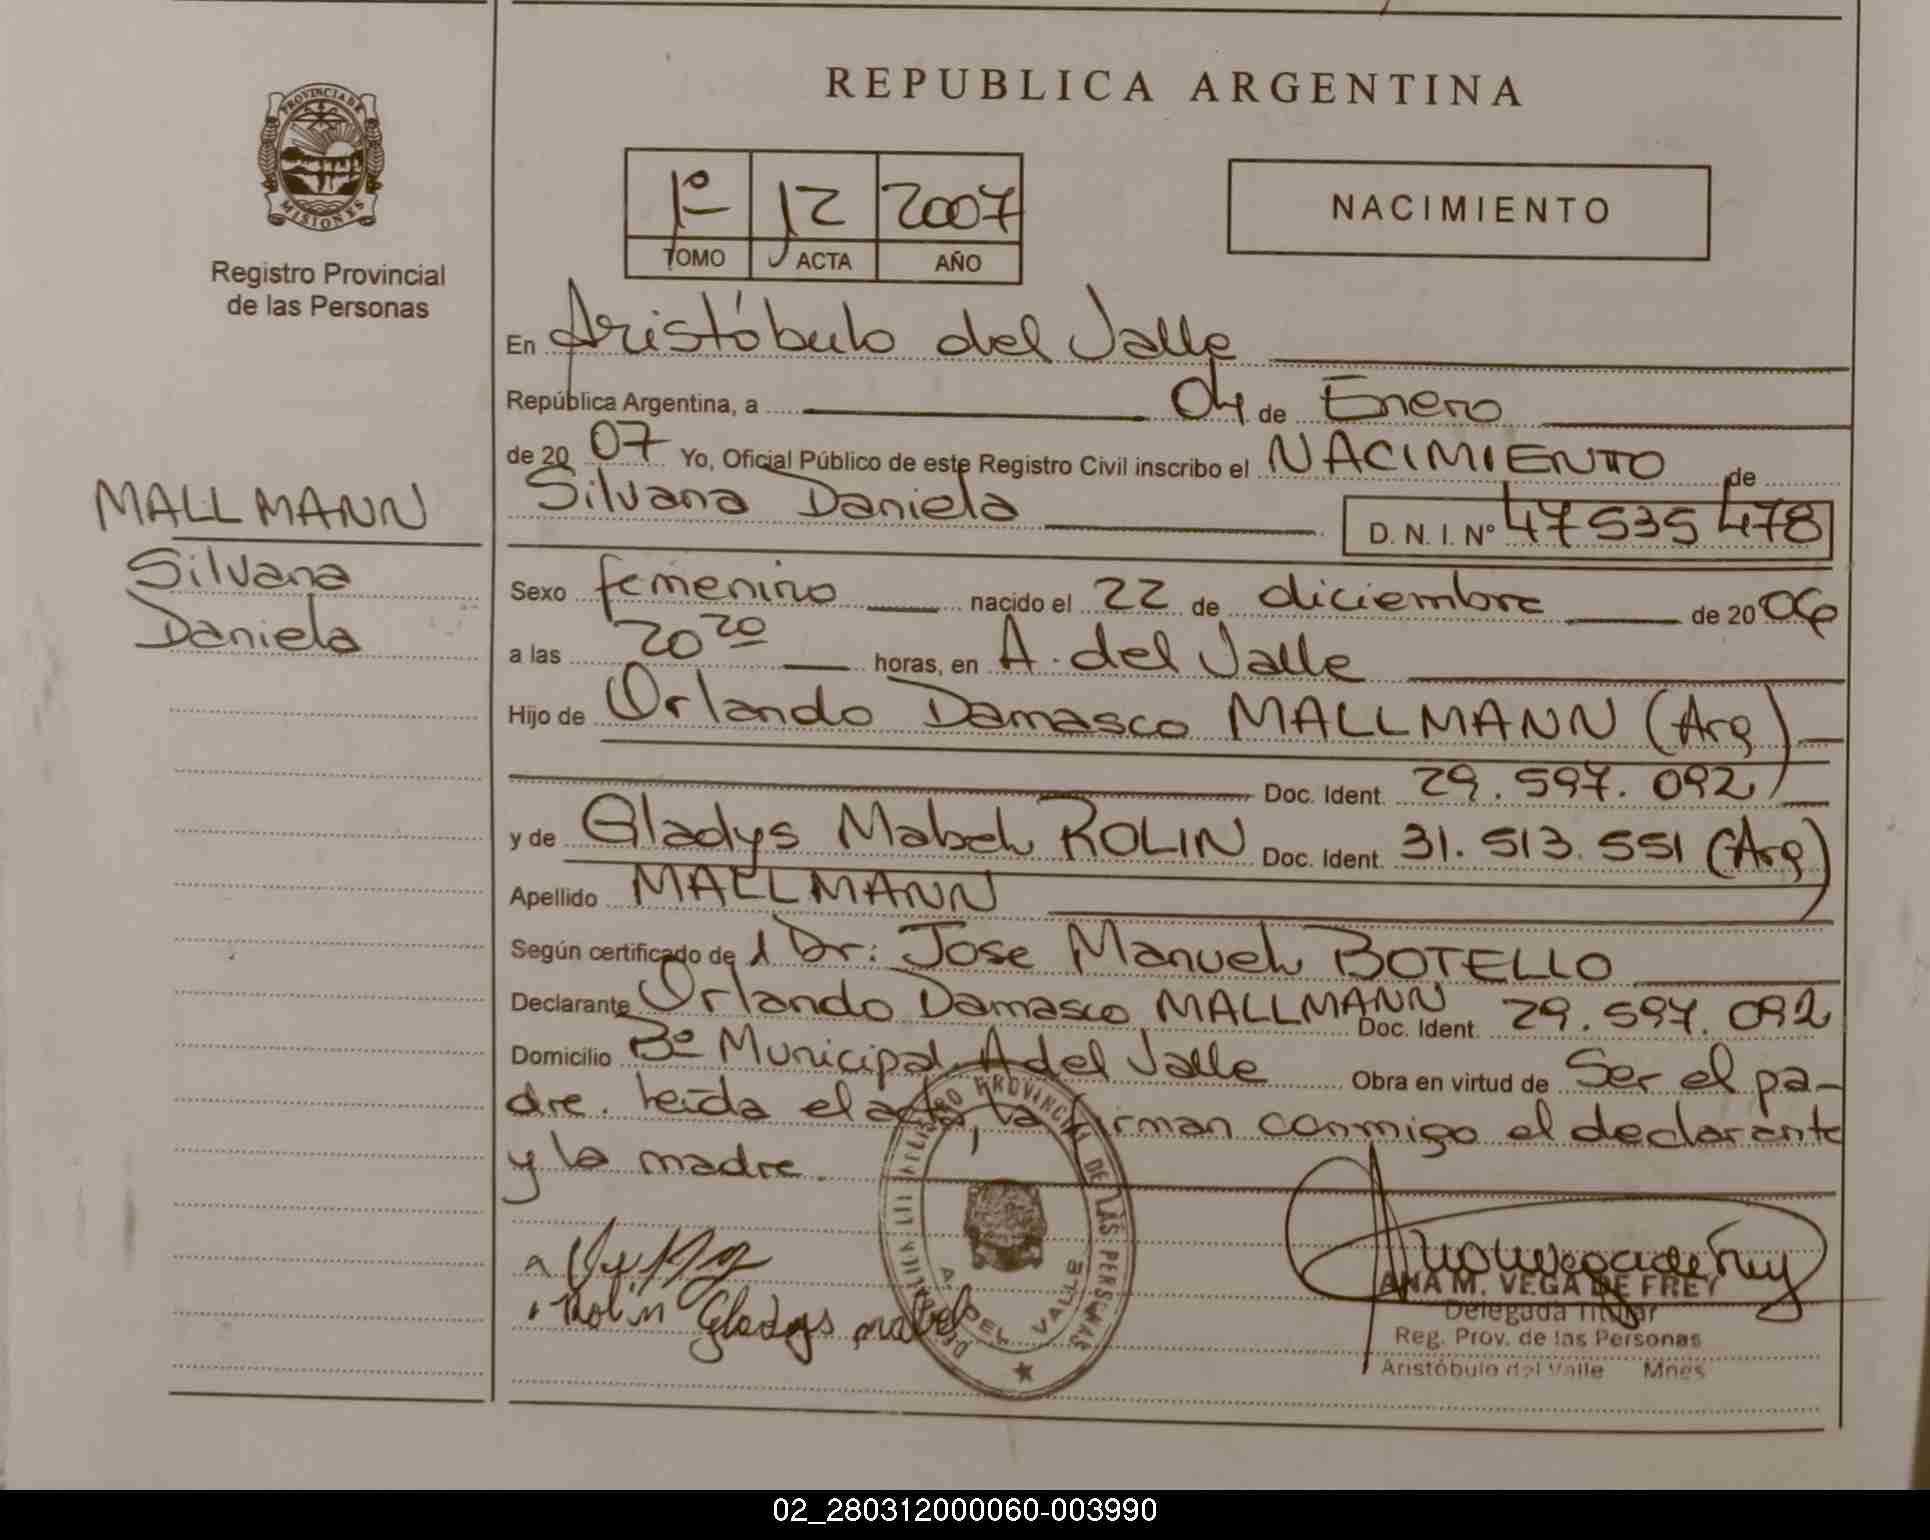 REPUBLICA ARGENTINA
PROVINCIA DE MISIONES
Registro Provincial
de las Personas
1º 12 2007
TOMO ACTA AÑO
NACIMIENTO
MALLMANN
Silvana
Daniela
En Aristóbulo del Valle
República Argentina, a 04 de Enero
de 20 07 Yo, Oficial Público de este Registro Civil inscribo el NACIMIENTO de
Silvana Daniela D. N. I. Nº 47535478
Sexo femenino nacido el 22 de diciembre de 20 06
a las 20 20 horas, en A. del Valle
Hijo de Orlando Damasco MALLMANN (Arg)
Doc. Ident. 29.597.092
y de Gladys Mabel ROLIN Doc. Ident. 31.513.551 (Arg)
Apellido MALLMANN
Según certificado de l Dr: Jose Manuel BOTELLO
Declarante Orlando Damasco MALLMANN Doc. Ident. 29.597.092
Domicilio Bº Municipal. A del Valle Obra en virtud de Ser el pa-
dre. leída el acta, la firman conmigo el declarante
y la madre.
Rolin Gladys mabel
REGISTRO PROVINCIAL DE LAS PERSONAS
A. DEL VALLE
ANA M. VEGA DE FREY
Delegada Titular
Reg. Prov. de las Personas
Aristóbulo del Valle Mnes
02_280312000060-003990